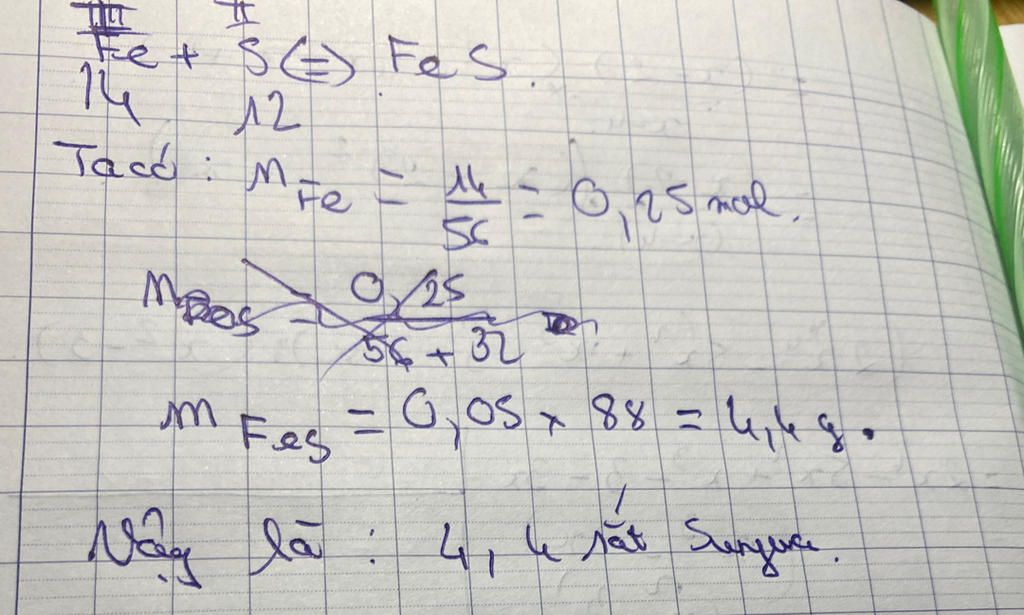 III II
Fe + S (=) FeS.
14 12
Ta có : nFe = 14/56 = 0,25 mol.
0,25
56 + 32
mFeS = 0,05 x 88 = 4,4 g.
Vậy là : 4,4 sắt Sunfua.